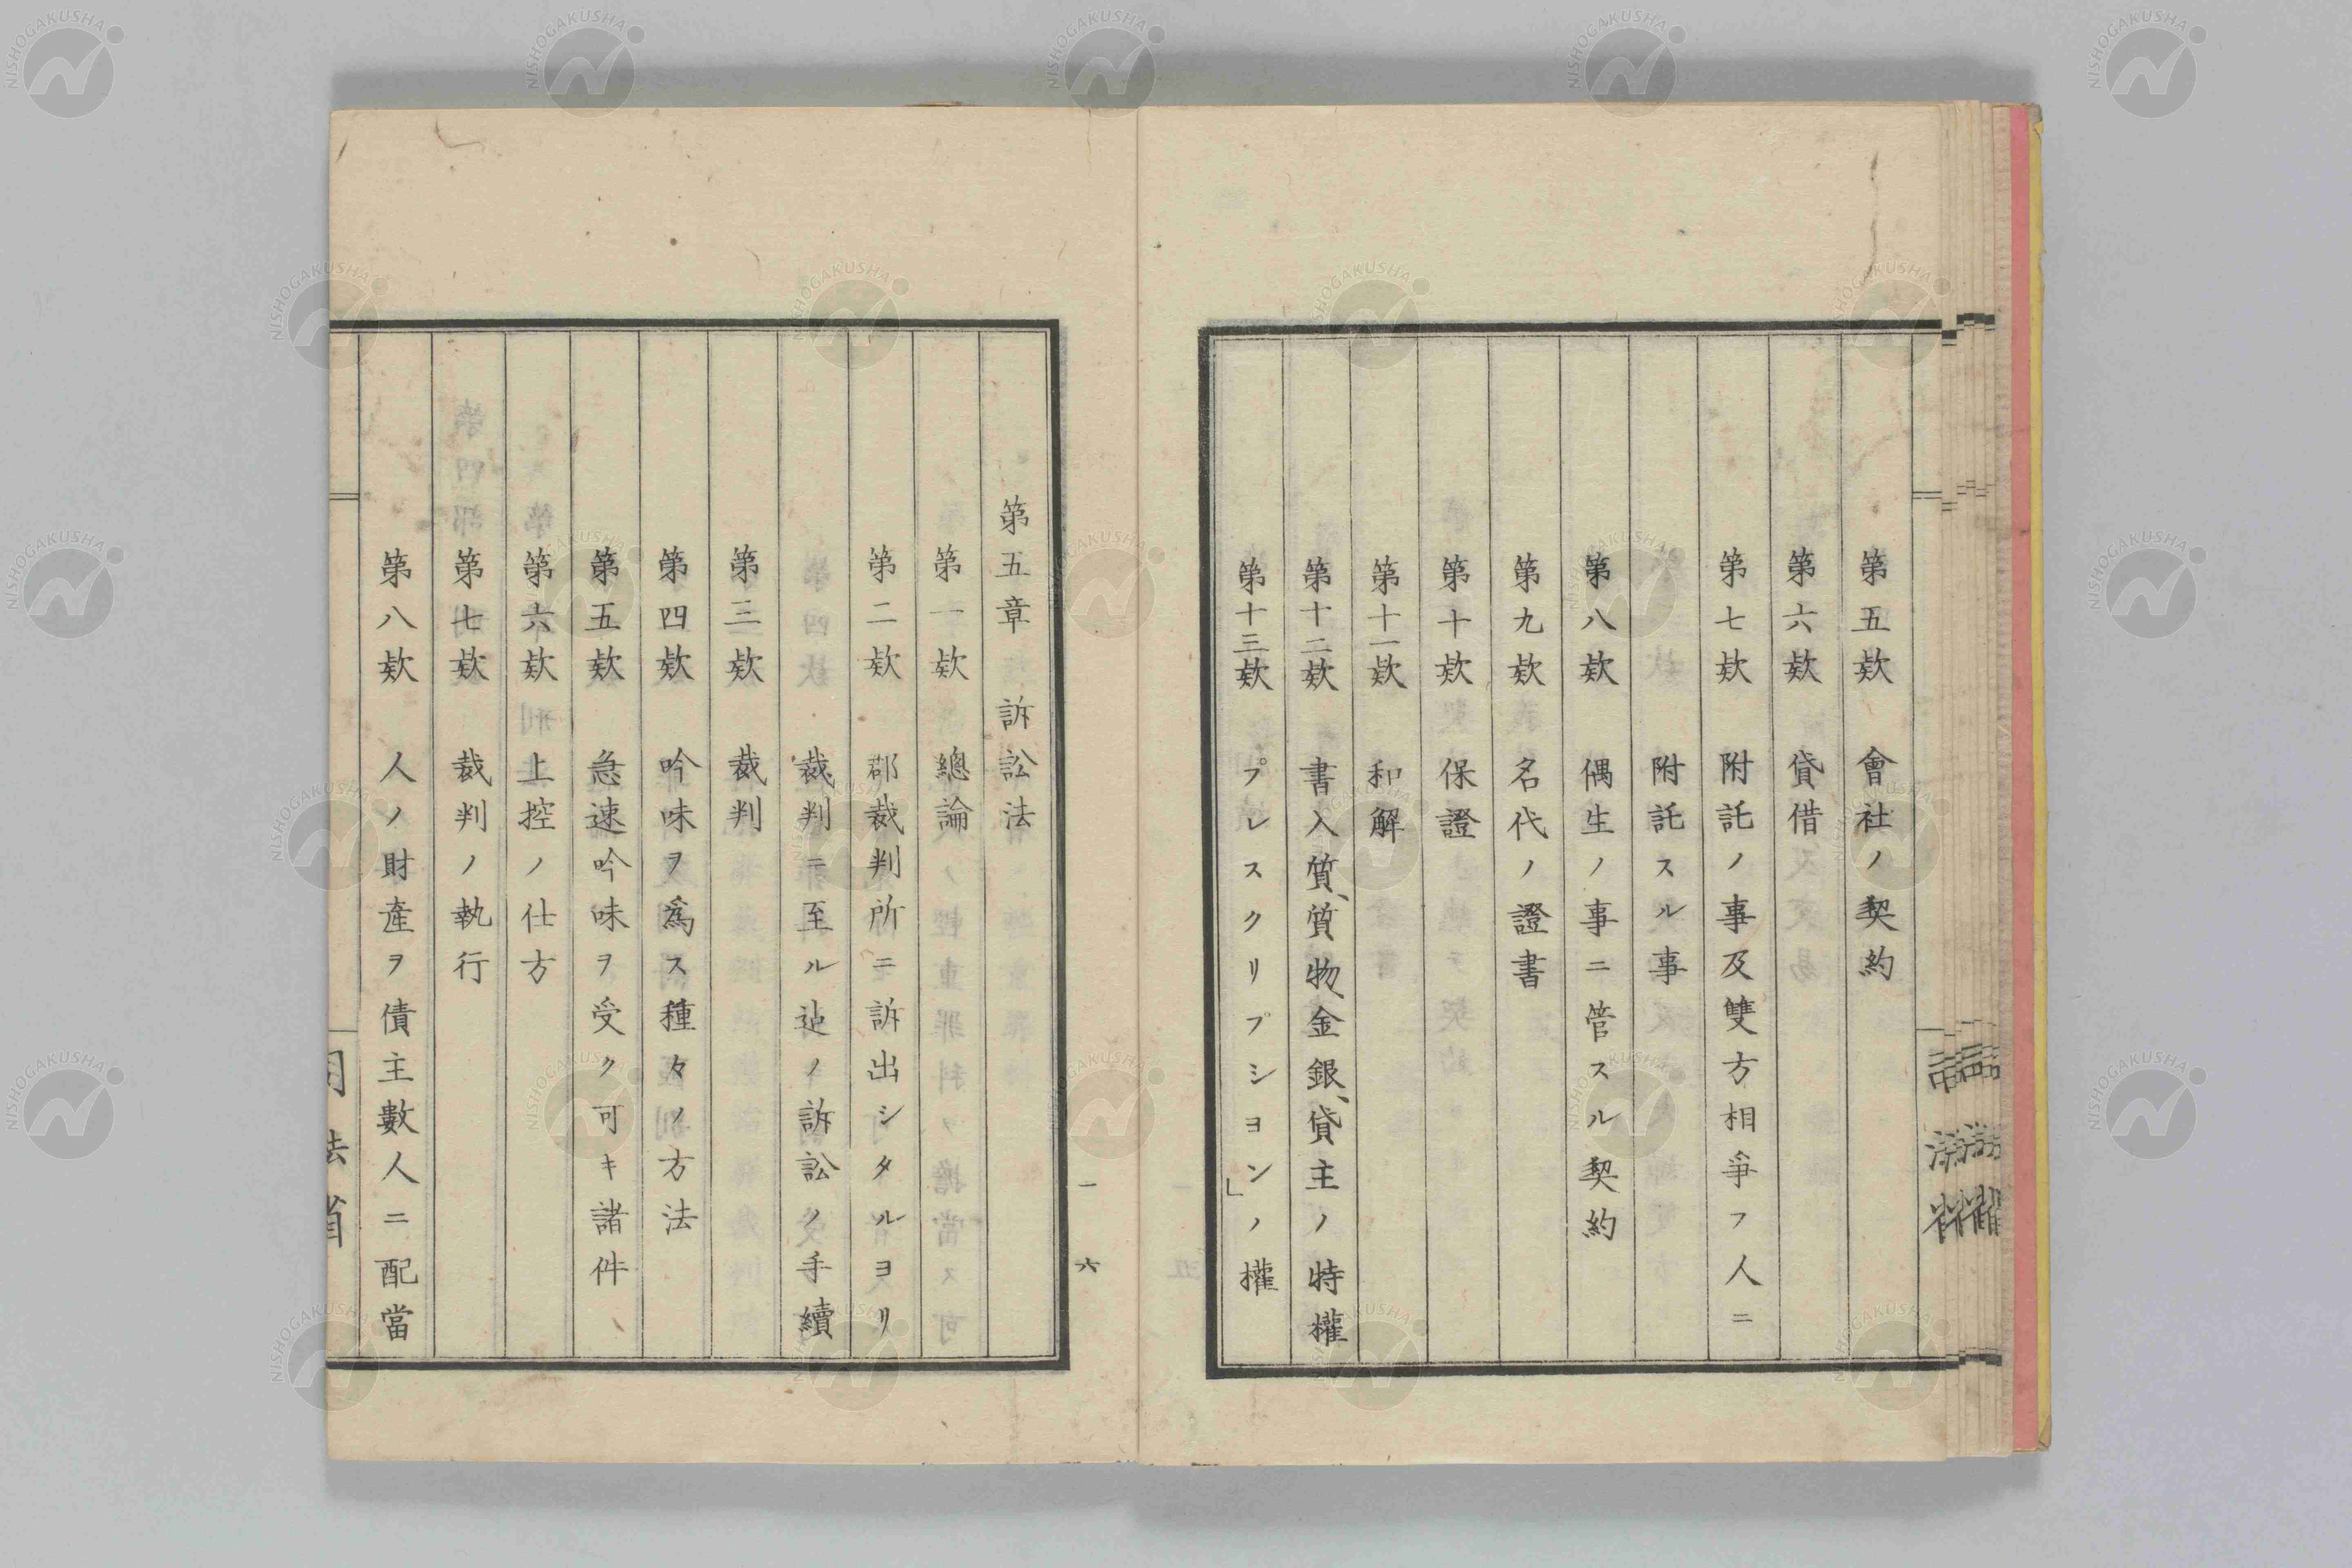 第五欵 會社ノ契約
第六欵 貸借
第七欵 附託ノ事及雙方相爭フ人ニ
附託スル事
第八欵 偶生ノ事ニ管スル契約
第九欵 名代ノ證書
第十欵 保證
第十一欵 和解
第十二欵 書入質、質物、金銀、貸主ノ特權
第十三欵 プレスクリプシヨン」ノ權
第五章 訴訟法
第一欵 總論
第二欵 郡裁判所ニ訴出シタルヨリ
裁判ニ至ル迠ノ訴訟ノ手續
第三欵 裁判
第四欵 吟味ヲ爲ス種々ノ方法
第五欵 急速吟味ヲ受ク可キ諸件
第六欵 上控ノ仕方
第七欵 裁判ノ執行
第八欵 人ノ財産ヲ債主數人ニ配當
一六
NISHOGAKUSHA